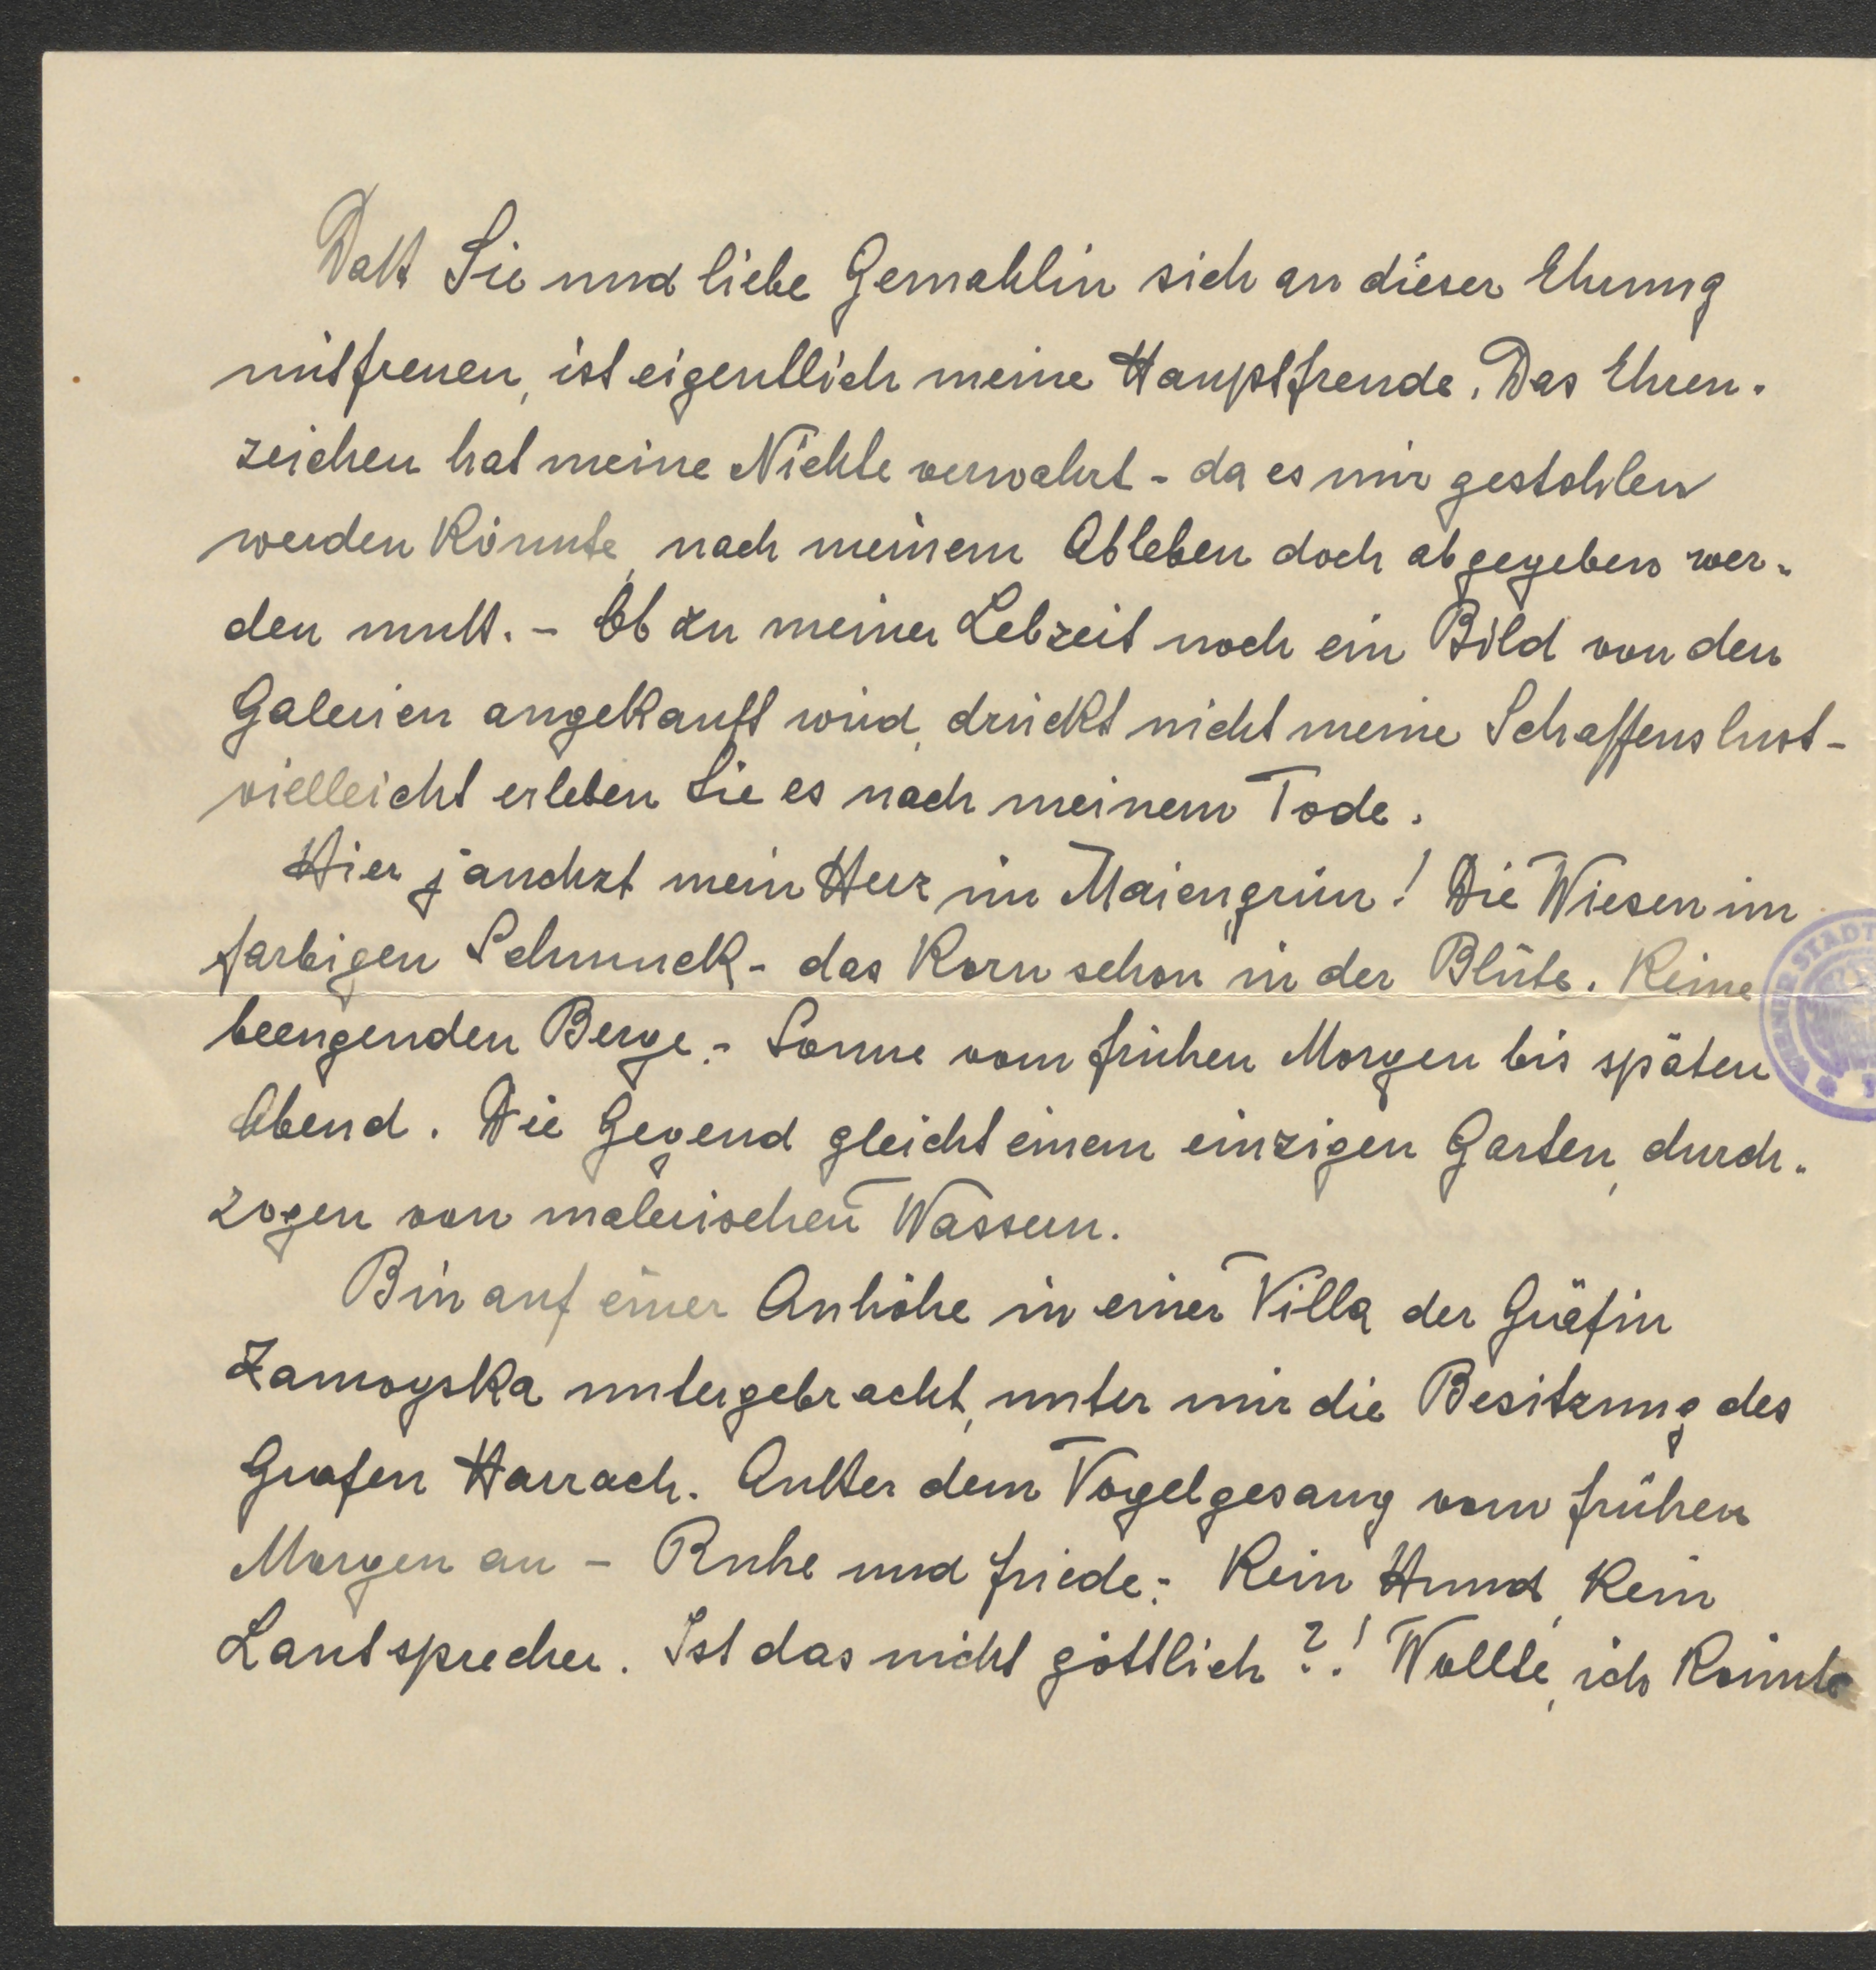 Daß Sie und liebe Gemahlin sich an dieser Ehrung
mitfreuen, ist eigentlich meine Hauptfreude. Das Ehren-
zeichen hat meine Nichte verwahrt - da es mir gestohlen
werden könnte, nach meinem Ableben doch abgegeben wer-
den muß. - Ob zu meiner Lebzeit noch ein Bild von den
Galerien angekauft wird, drückt nicht meine Schaffenslust -
vielleicht erleben Sie es nach meinem Tode.
Hier jauchzt mein Herz im Maiengrün! Die Wiesen im
farbigen Schmuck - das Korn schon in der Blüte. Keine
beengenden Berge. - Sonne vom frühen Morgen bis späten
Abend. Die Gegend gleicht einem einzigen Garten, durch-
zogen von malerischen Wassern.
Bin auf einer Anhöhe in einer Villa der Gräfin
Zamoyska untergebracht, unter mir die Besitzung des
Grafen Harrach. Außer dem Vogelgesang vom frühen
Morgen an - Ruhe und Friede. - Kein Hund, kein
Lautsprecher. Ist das nicht göttlich?! Wollte, ich könnte